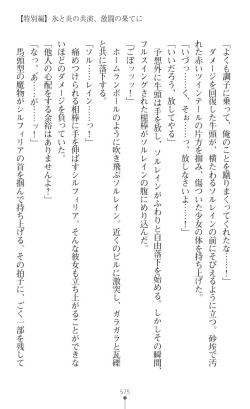 【特別編】氷と炎の共演、激闘の果てに
「よくも調子に乗って、俺のことを蹴りまくってくれたなぁ……！」
ダメージを回復した牛頭が、横たわるソルレインの前にそびえるように立つ。砂埃で汚
れた赤いツインテールの片方を掴み、傷ついた少女の体を持ち上げた。
「いづっ……く、そぉっ、放しなさいよ……っ！」
「いいだろう、放してやる」
予想外に牛頭は手を放し、ソルレインがふわりと自由落下を始める。しかしその瞬間、
フルスイングされた棍棒がソルレインの腹にめり込んだ。
「ごぼっッッ！」
ホームランボールのように吹き飛ぶソルレイン。近くのビルに激突し、ガラガラと瓦礫
と共に落下する。
「ソル……レイン……っ！」
痛めつけられる相棒に手を伸ばすシルフィリア。そんな彼女も立ち上がることができな
いほどのダメージを負っていた。
「他人の心配をする余裕はありませんよ！」
「なっ、あ……が……ッ！」
馬頭型の魔物がシルフィリアの首を掴んで持ち上げる。その拍子に、ごく一部を残して
575